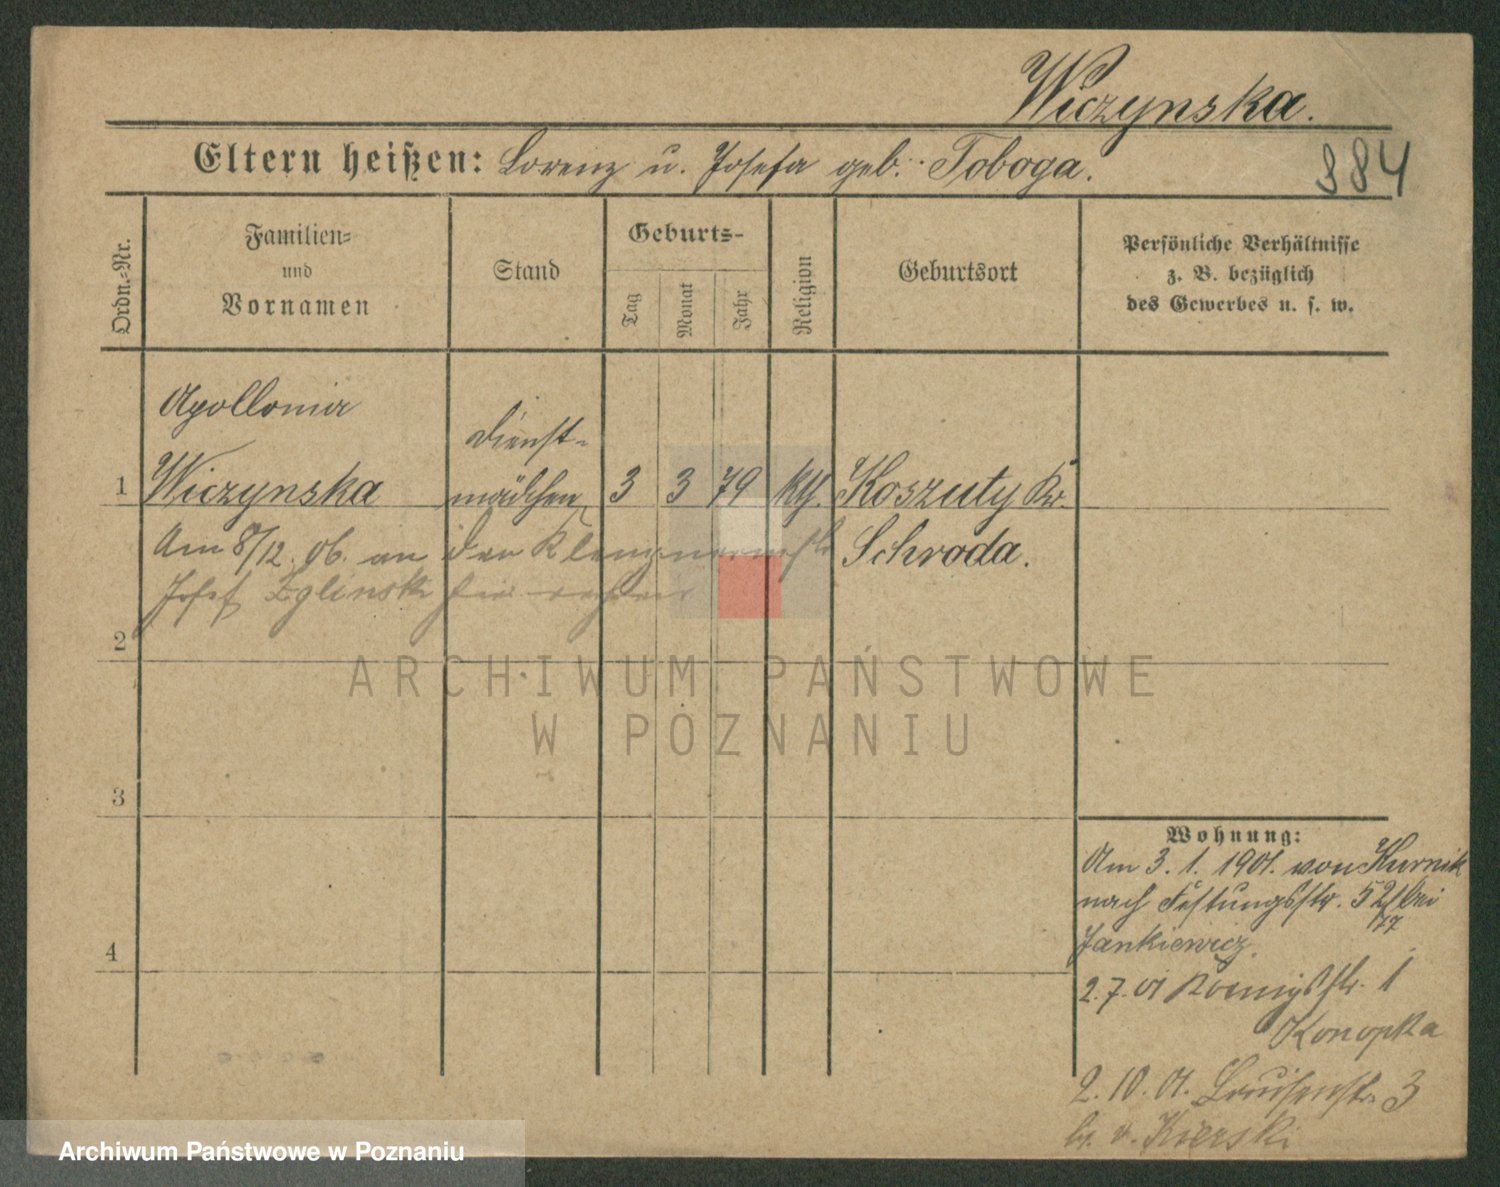 Wiczynska.
Eltern heißen: Lorenz u. Josefa geb. Toboga.
384
Ordn.=Nr.
Familien=
und
Vornamen
Stand
Geburts-
Tag
Monat
Jahr
Religion
Geburtsort
Persönliche Verhältnisse
z. B. bezüglich
des Gewerbes u. s. w.
Apollonia
Dienst=
1 Wiczynska mädchen 3 3 79 kth. Koszuty Kr.
Schroda.
Am 8/12. 06. an den
Josef Zglinski hier
2
3
4
Wohnung:
Am 3. 1. 1901. von Kurnik
nach Festungsstr. 52 bei
Jankiewicz.
2. 7. 01 Koenigsstr. 1
Konopka
2. 10. 01. Louisenstr. 3
b. v. Kierski
ARCHIWUM PAŃSTWOWE
W POZNANIU
Archiwum Państwowe w Poznaniu